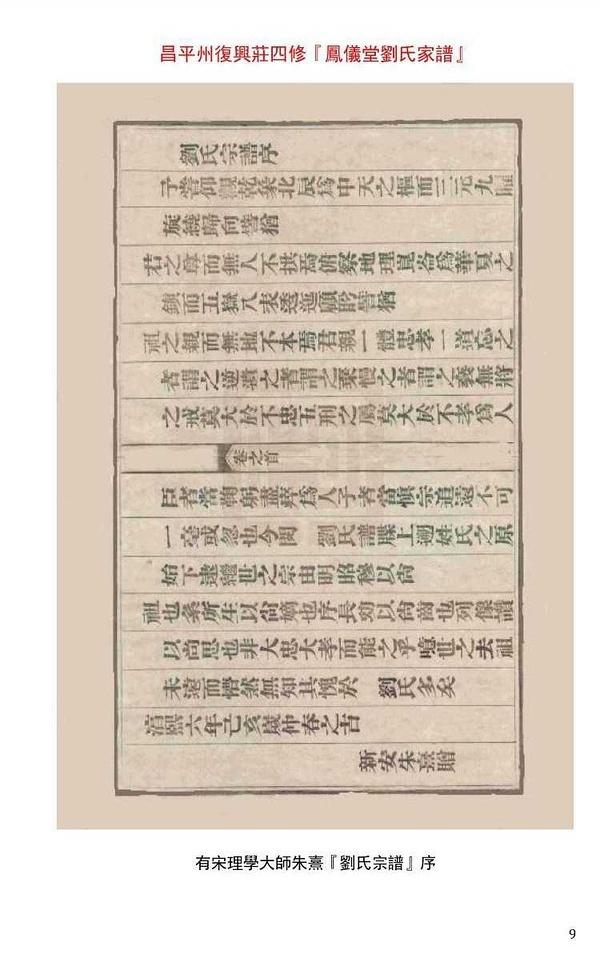 昌平州復興莊四修『鳳儀堂劉氏家譜』
劉氏宗譜序
予嘗仰觀乾象北辰爲中天之樞而三元九
旋繞歸向譬猶
君之尊而無人不拱焉俯察地理崑崙爲華夏之
鎮而五嶽八表透迤顧盼譬猶
祖之親而無地不本焉君親一體忠孝一道忘之
者謂之逆遺之者謂之棄慢之者謂之褻無將
之戒莫大於不忠五刑之屬莫大於不孝爲人
卷之首
臣者當鞠躬盡瘁爲人子者當慎宗追遠不可
一毫或忽也今閱 劉氏譜牒上遡姓氏之原
始下逮繼世之宗由明昭穆以尚
祖也系所生以尙嫡也序長幼以尙齒也列像讚
以尚思也非大忠大孝而能之乎噫世之去祖
未遠而懵然無知其愧於 劉氏多矣
淳熙六年己亥歲仲春之吉
新安朱熹贈
有宋理學大師朱熹『劉氏宗譜』序
9